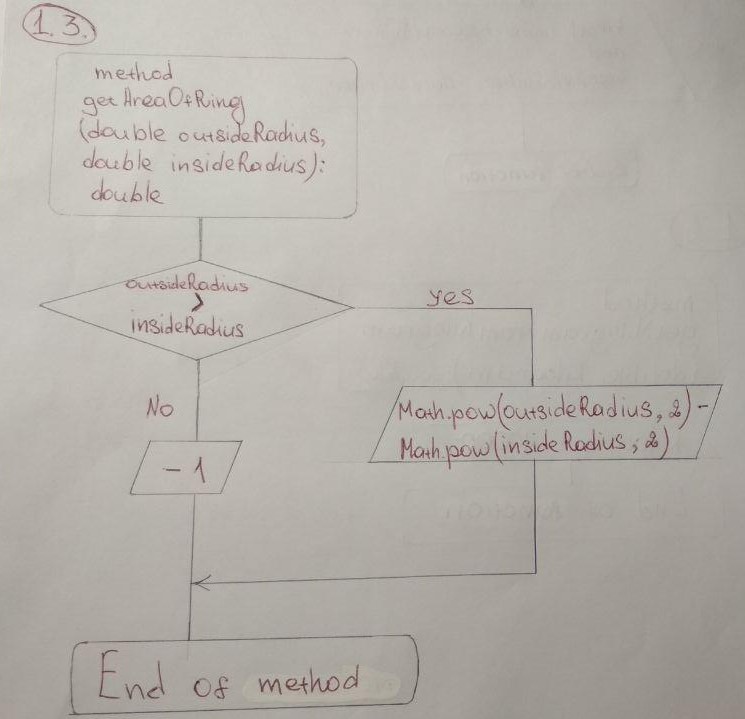 1.3.
method
getAreaOfRing
(double outsideRadius,
double insideRadius):
double
outsideRadius
>
insideRadius
yes
No
Math.pow(outsideRadius, 2) -
Math.pow(insideRadius, 2)
- 1
End of method